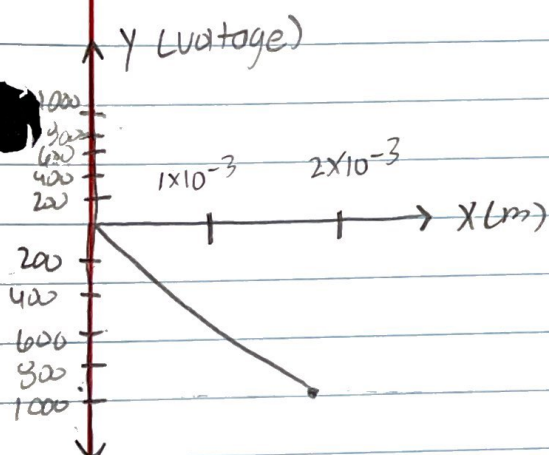 Y (Voltage)
1000
800
600
400
200
1x10-3
2x10-3
X(m)
200
400
600
800
1000